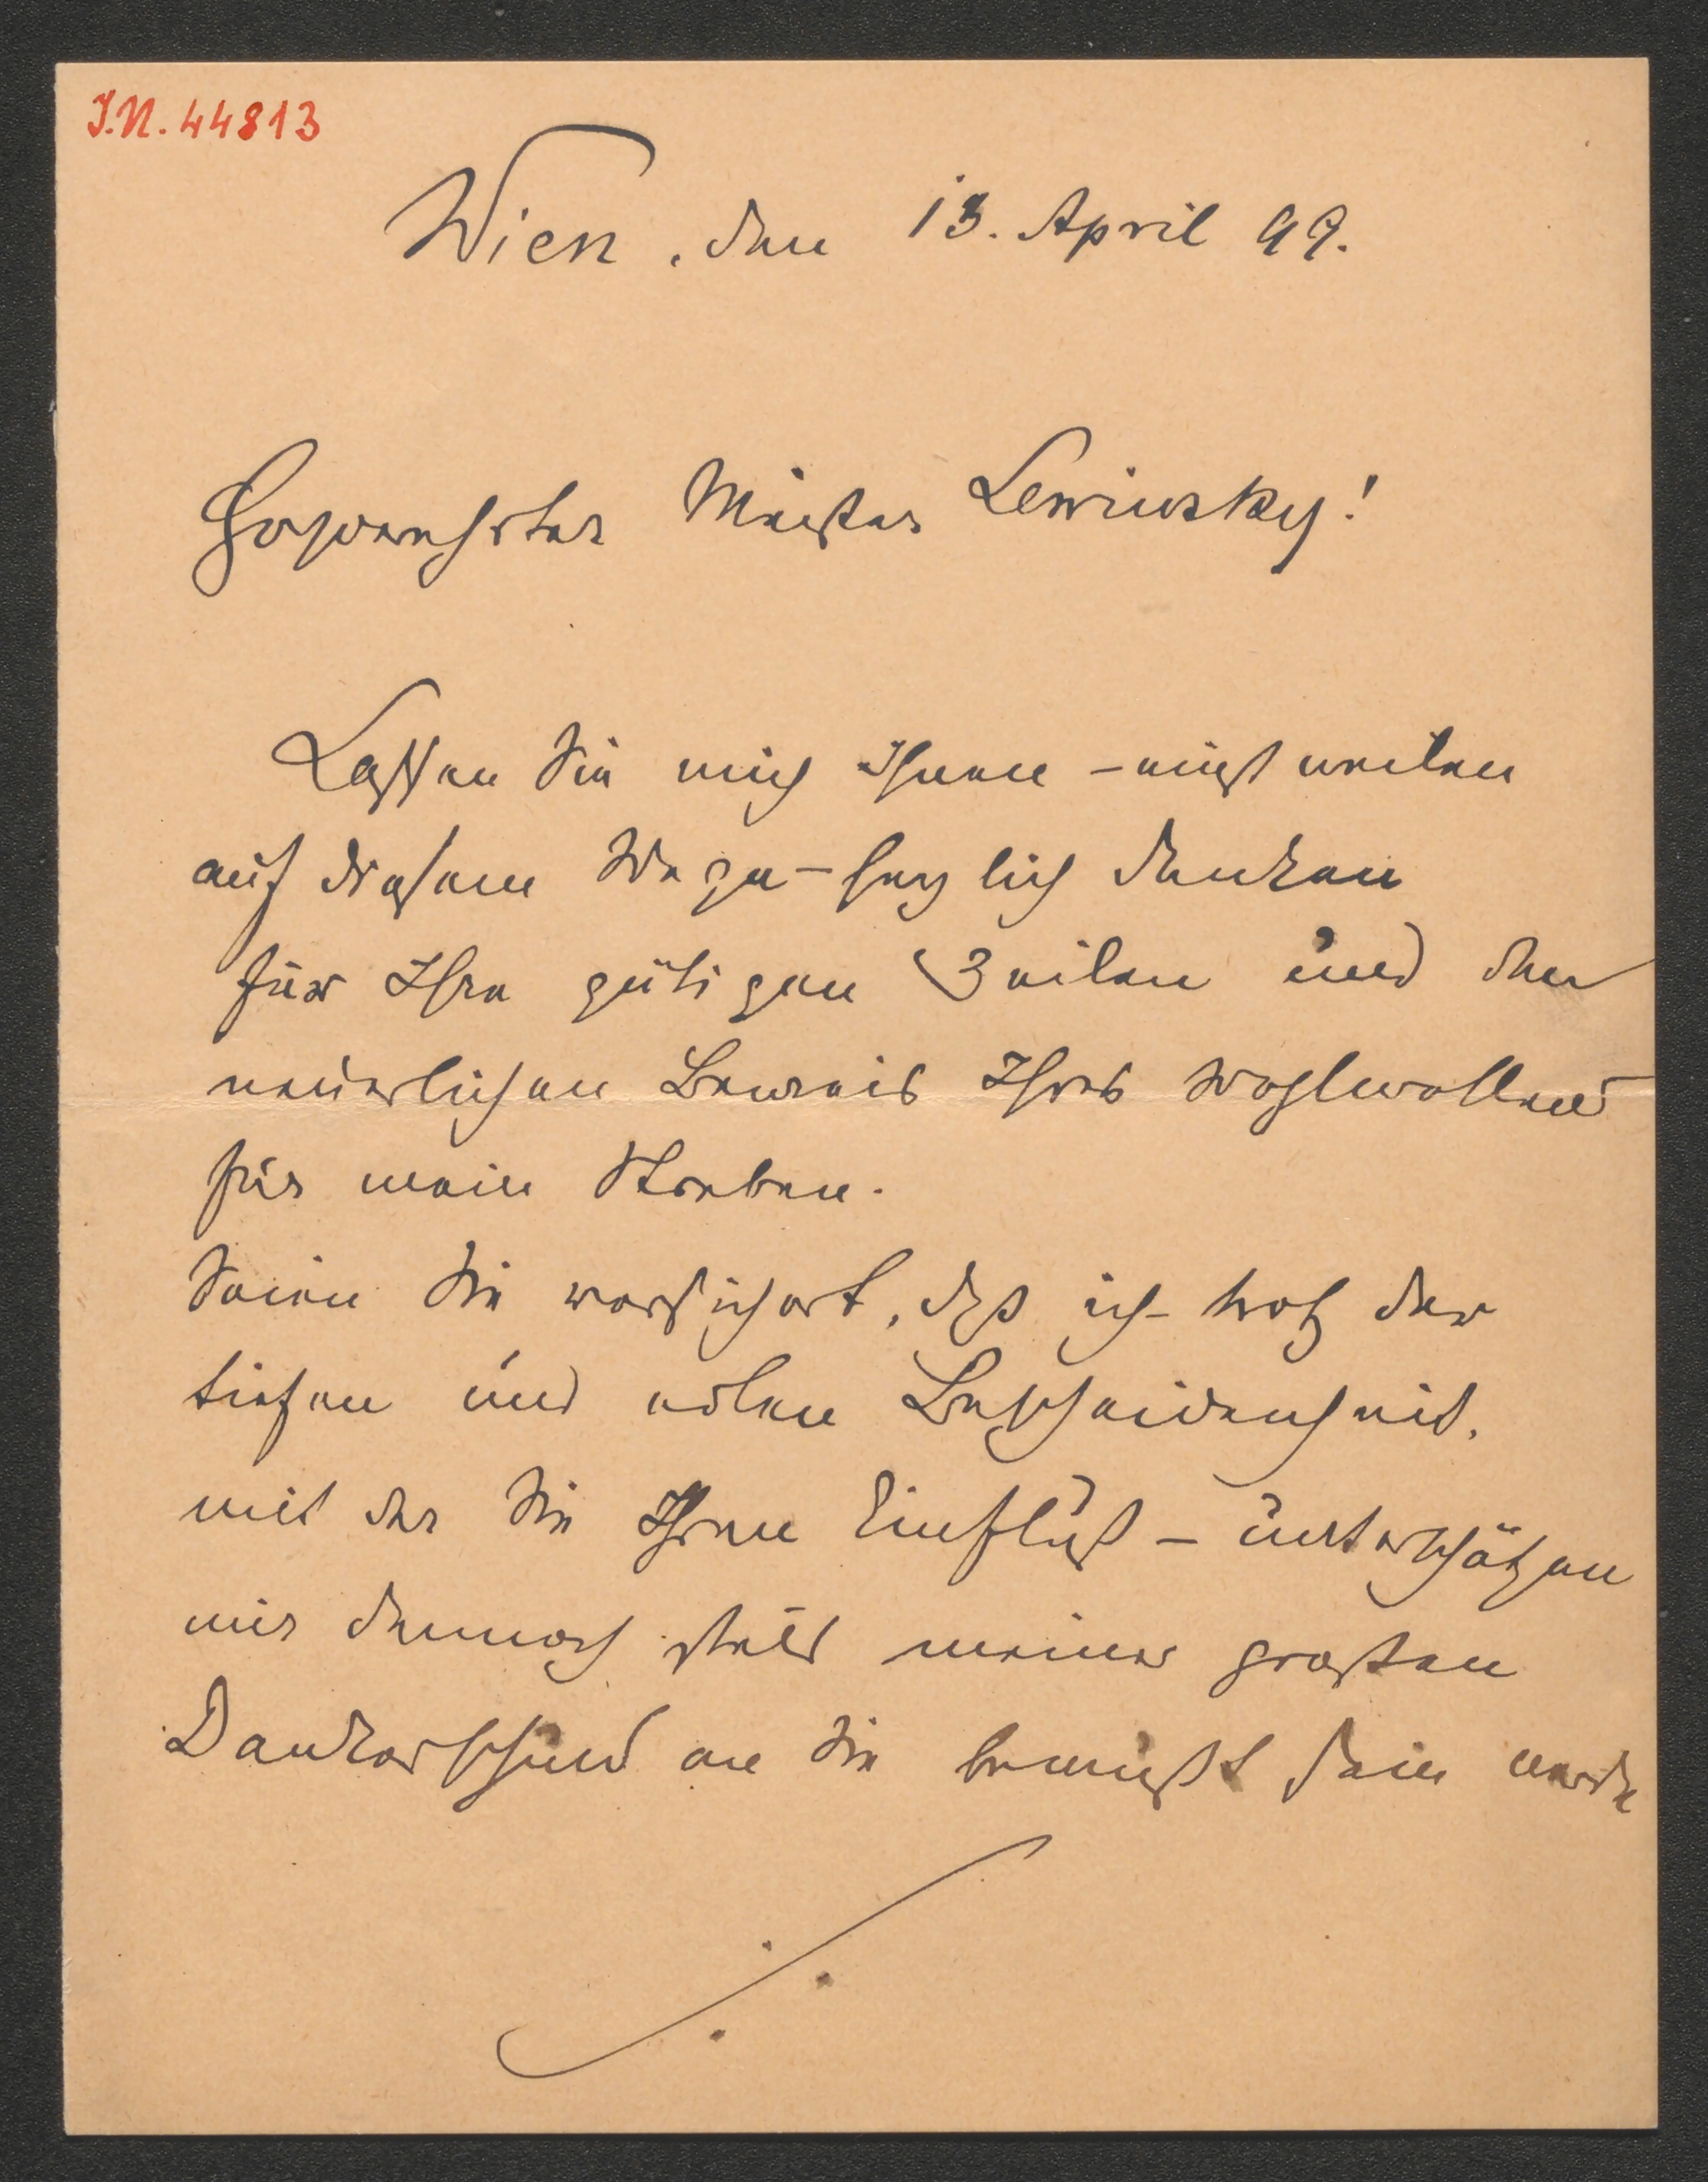 J.N. 44813
Wien, den 13. April 99.
Hochverehrter Meister Lewinsky!
Lassen Sie mich Ihnen – einstweilen
auf diesem Wege – herzlich danken
für Ihre gütigen Zeilen und den
neuerlichen Beweis Ihres Wohlwollens
für mein Streben.
Seien Sie versichert, daß ich trotz der
tiefen und edlen Bescheidenheit,
mit der Sie Ihren Einfluß – unterschätzen
mir dennoch stets meiner großen
Dankesschuld an Sie bewußt sein werde